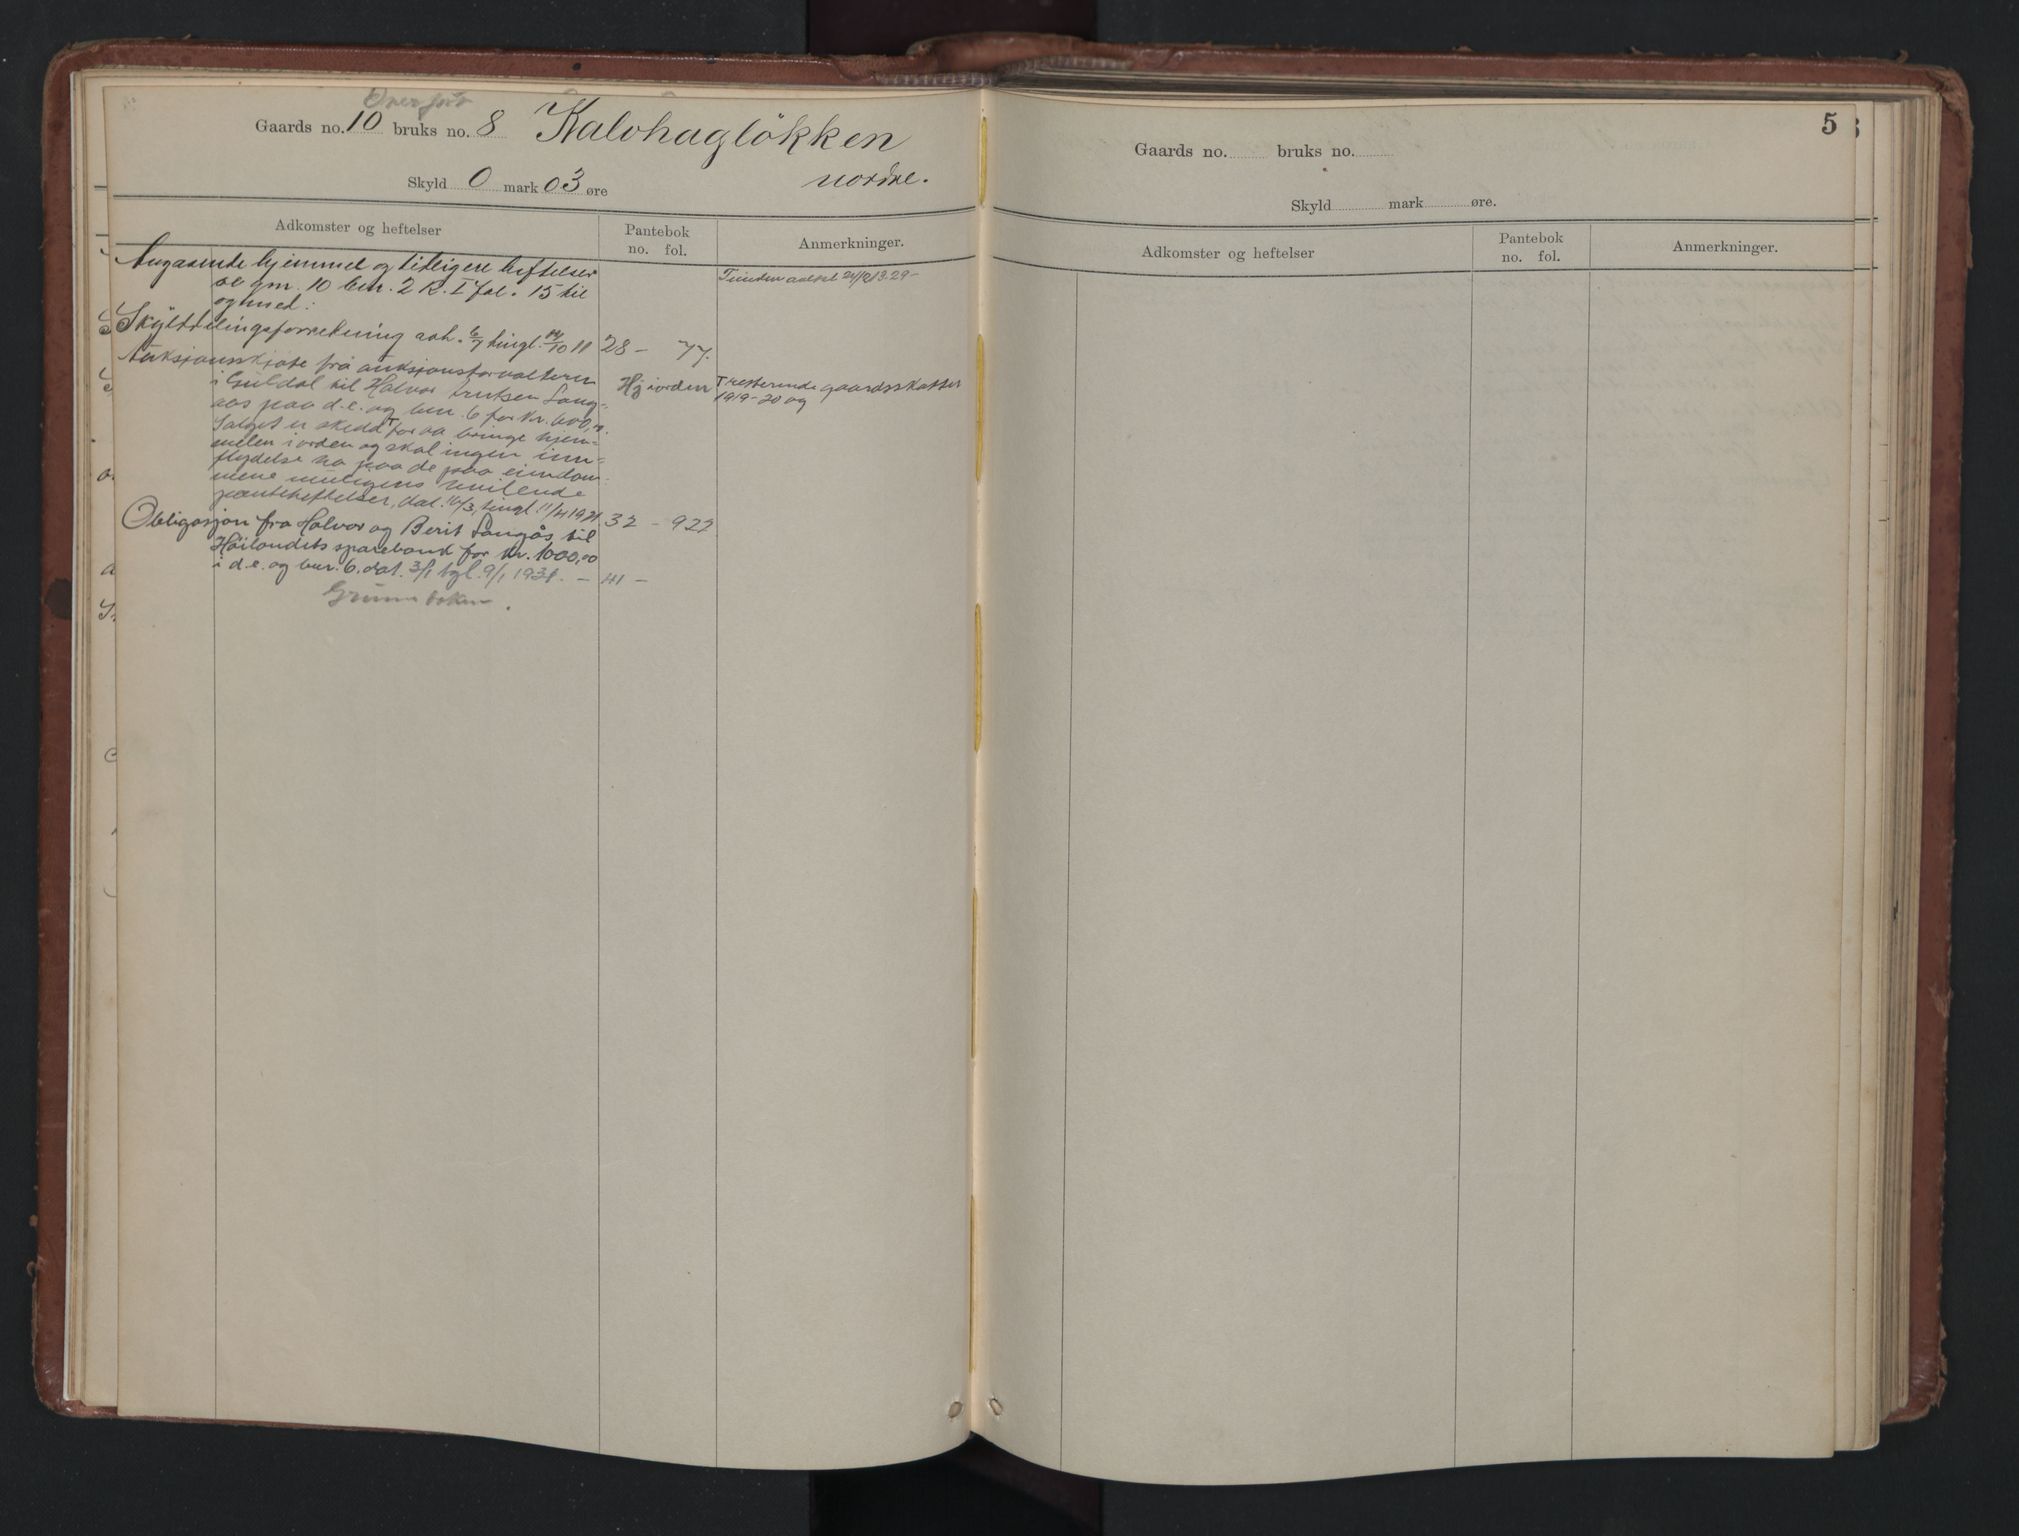 Overført
Gaards no. 10 bruks no. 8 Kalvhagløkken
nordre.
Skyld 0 mark 03 øre
Adkomster og heftelser
Pantebok
no. fol.
Anmerkninger.
Angaaende hjemmel og tidligere heftelser
se gnr. 10 bnr. 2 R. I fol. 15 til
og med:
Skylddelingsforretning avh. 6/7 tingl. 14/10 11 28 - 77.
Auksjonsskjøte fra auksjonsforvalteren
i Guldal til Halvor Lang-
aas paa d.e. og bnr. 6 for kr. 600,
Salget er skedd T for aa bringe hjem-
melen i orden og skal ingen inn-
flydelse ha paa de paa eiendom-
mene muligens hvilende
panteheftelser, dat. 16/3, tingl. 11/4 1921
Hj iorden
T resterende gaardsskatter
1919-20 og
Obligasjon fra Halvor og Berit Langås til 32 - 922
Höilandets sparebank for kr. 1000,00
i d.e. og bnr. 6. dat. 3/1 tgl. 9/1 1931. - 41 -
Grunnboken.
5
Gaards no. bruks no.
Skyld mark øre.
Adkomster og heftelser
Pantebok
no. fol.
Anmerkninger.